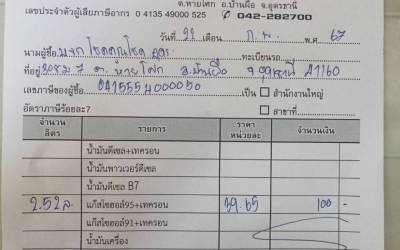 ต.หายโศก อ.บ้านผือ จ.อุดรธานี
เลขประจำตัวผู้เสียภาษีอากร 0 4135 49000 525 042-282700
วันที่ 22 เดือน ก.พ. พ.ศ 67
นามผู้ซื้อ ทะเบียนรถ
ที่อยู่ ม 7 ต. หายโศก อ.บ้านผือ จ.อุดรธานี 41160
เลขภาษีของผู้ซื้อ 0415554000050 เป็น สำนักงานใหญ่
อัตราภาษีร้อยละ7 สาขาที่
จำนวน ลิตร รายการ ราคา หน่วยละ จำนวนเงิน
น้ำมันดีเซล+เทครอน
น้ำมันพาวเวอร์ดีเซล
น้ำมันดีเซล B7
2.52ล. แก๊สโซฮอล์95+เทครอน 39.65 100 -
แก๊สโซฮอล์91+เทครอน
น้ำมันเครื่อง